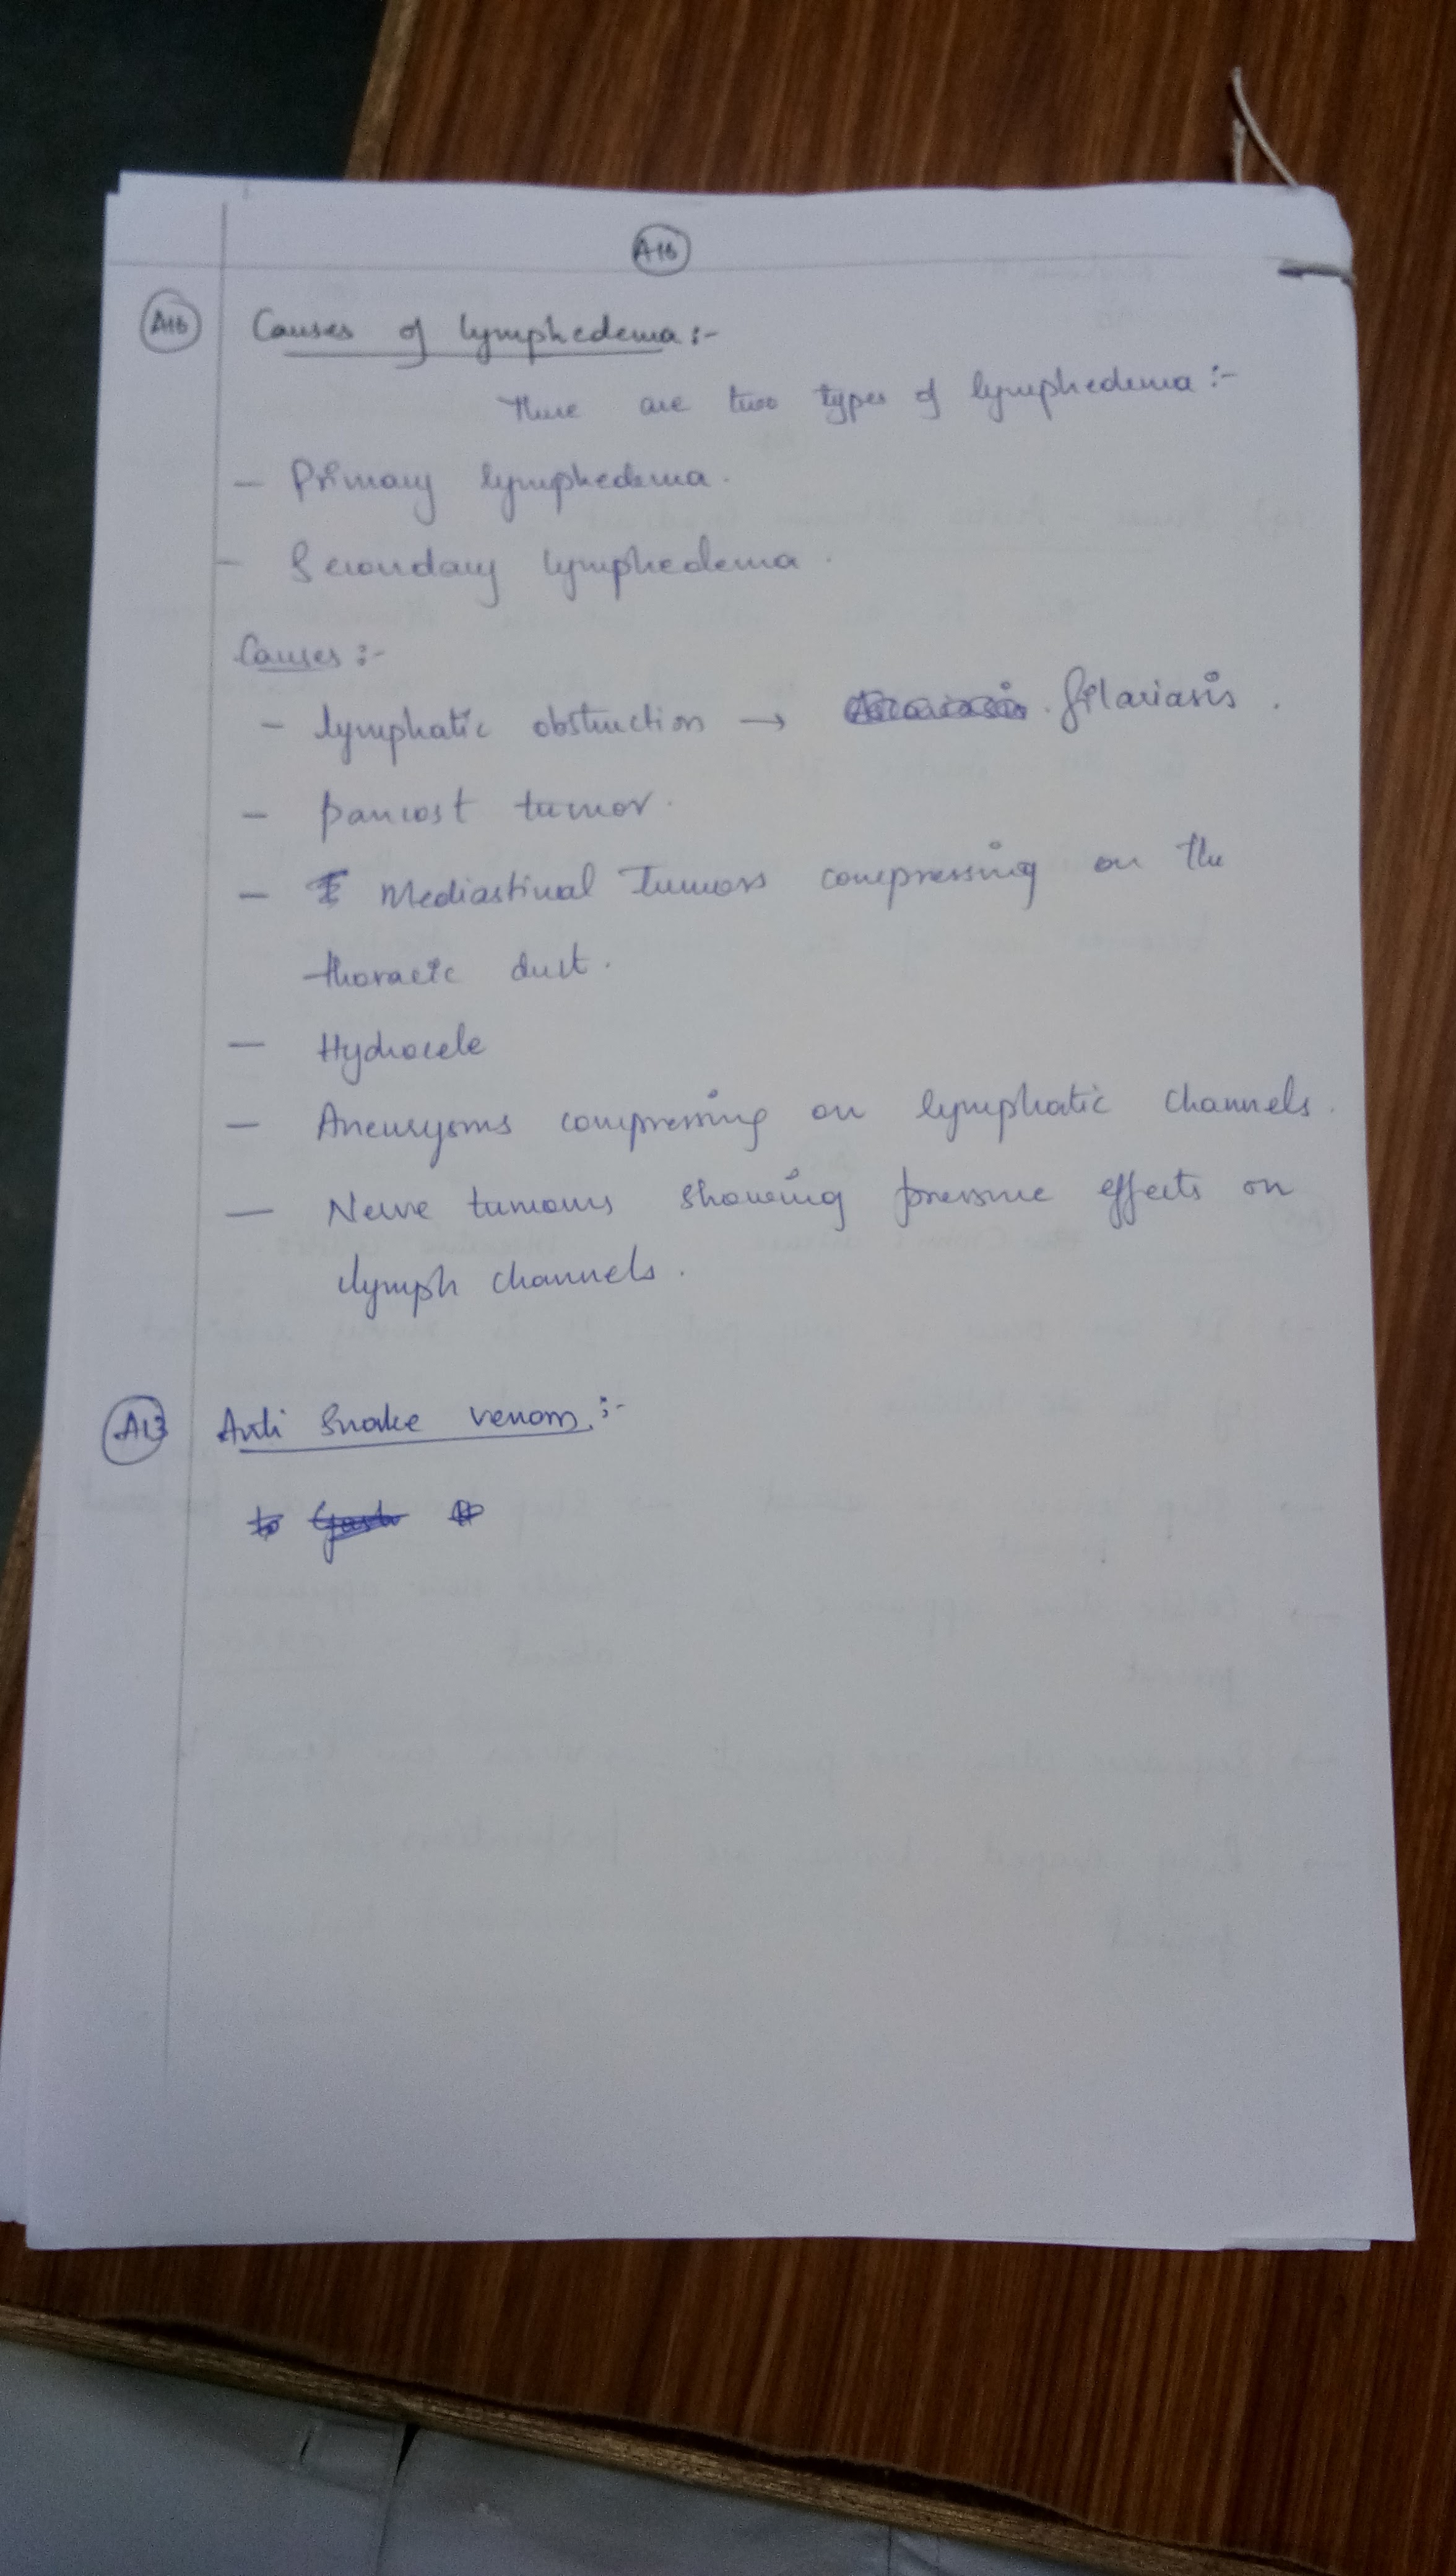 A16
A16 Causes of lymphedema:-
There are two types of lymphedema:-
- Primary lymphedema.
- Secondary lymphedema.
Causes:-
- lymphatic obstruction → filariasis.
- pancost tumor.
- Mediastinal Tumors compressing on the
thoracic duct.
- Hydrocele
- Aneurysms compressing on lymphatic channels.
- Nerve tumours showing pressure effects on
lymph channels.
A13 Anti Snake venom:-
to